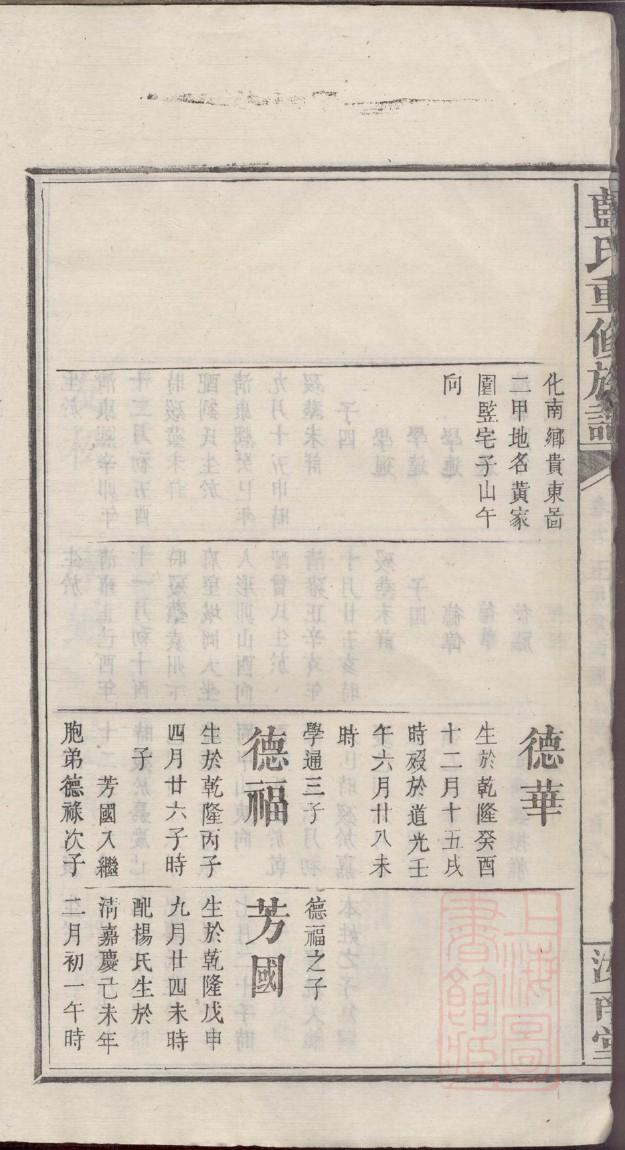 藍氏重修族譜
化南鄉貴東啚
二甲地名黃家
園竪宅子山午
向
德華
生於乾隆癸酉
十二月十五戌
時歿於道光壬
午六月廿八未
時
學通三子
德福
生於乾隆丙子
四月廿六子時
子
芳國入繼
胞弟德祿次子
德福之子
芳國
生於乾隆戊申
九月廿四未時
配楊氏生於
淸嘉慶己未年
二月初一午時
汝南堂
上海圖書館藏